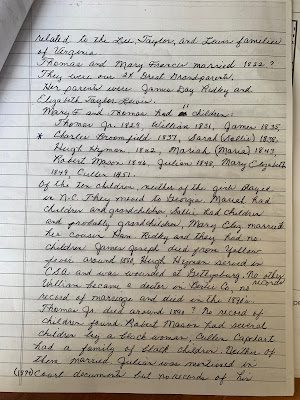 related to the Lee, Taylor, and Lewis families
of Virginia.
Thomas and Mary Francis married 1822?
They were our 2X Great Grandparents.
Her parents were James Day Ridley and
Elizabeth Taylor
Mary F and Thomas had " children:
Thomas Jr. 1829, William 1831, James 1835,
* Charles Broomfield 1837, Sarah (Sallie) 1838,
Hugh Hyman, 1842, Mariah (Maria) 1843,
Robert Mason 1846, Julian 1848, Mary Elizabeth
1849, Cullen 1851.
Of the ten children neither of the girls stayed
in N.C. They moved to Georgia. Mariah had
children and grandchildren, Sallie had children
and probably grandchildren, Mary Eliz married
her cousin Ridley and they had no
children. James Joseph died from Yellow
fever around Hugh Hyman served in
CSA and was wounded at Gettysburg, No other records
William became a doctor in Bertie Co, no
record of marriage and died in the 1870's.
Thomas Jr. died around ? No record of
children found. Robert Mason had several
children by a black woman, Cullen Capehart
had a family of black children. Neither of
them married. Julian was mentioned in
(1870) Court documents but no records of his